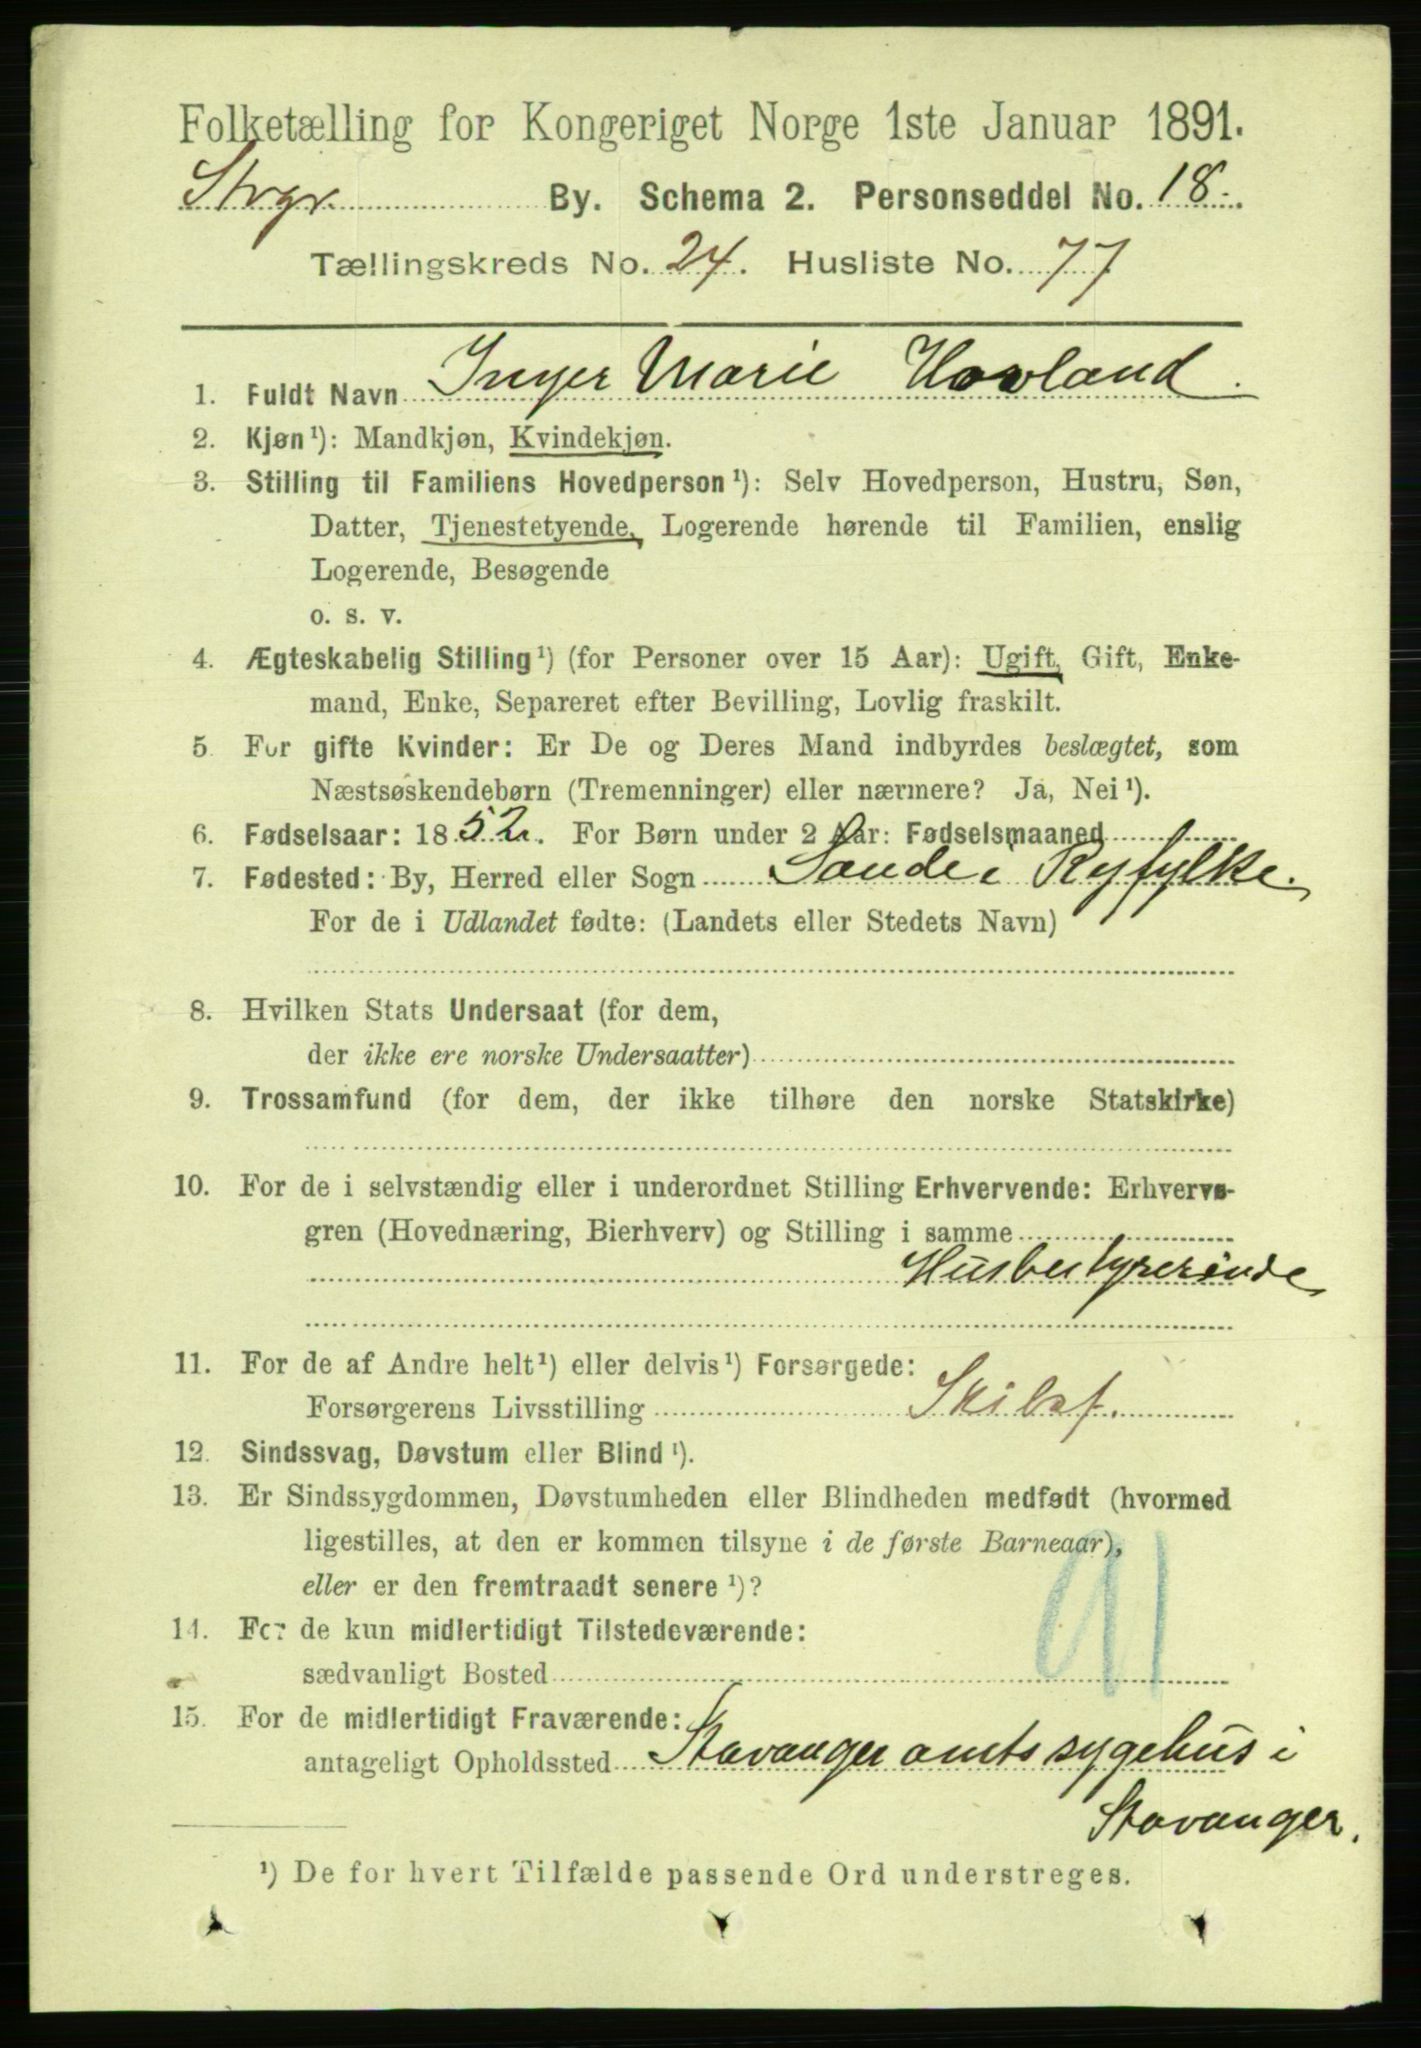 Folketælling for Kongeriget Norge 1ste Januar 1891.
Stvgr. By. Schema 2. Personseddel No. 18.
Tællingskreds No. 24. Husliste No. 77
1. Fuldt Navn Inger Marie Hovland.
2. Kjøn¹): Mandkjøn, Kvindekjøn.
3. Stilling til Familiens Hovedperson¹): Selv Hovedperson, Hustru, Søn,
Datter, Tjenestetyende, Logerende hørende til Familien, enslig
Logerende, Besøgende
o. s. v.
4. Ægteskabelig Stilling¹) (for Personer over 15 Aar): Ugift, Gift, Enke-
mand, Enke, Separeret efter Bevilling, Lovlig fraskilt.
5. For gifte Kvinder: Er De og Deres Mand indbyrdes beslægtet, som
Næstsøskendebørn (Tremenninger) eller nærmere? Ja, Nei¹).
6. Fødselsaar: 1852. For Børn under 2 Aar: Fødselsmaaned
7. Fødested: By, Herred eller Sogn Sande i Ryfylke.
For de i Udlandet fødte: (Landets eller Stedets Navn)
8. Hvilken Stats Undersaat (for dem,
der ikke ere norske Undersaatter)
9. Trossamfund (for dem, der ikke tilhøre den norske Statskirke)
10. For de i selvstændig eller i underordnet Stilling Erhvervende: Erhvervs-
gren (Hovednæring, Bierhverv) og Stilling i samme
Husbestyrerinde
11. For de af Andre helt¹) eller delvis¹) Forsørgede:
Forsørgerens Livsstilling Skibsf.
12. Sindssvag, Døvstum eller Blind¹).
13. Er Sindssygdommen, Døvstumheden eller Blindheden medfødt (hvormed
ligestilles, at den er kommen tilsyne i de første Barneaar),
eller er den fremtraadt senere¹)?
91
14. For de kun midlertidigt Tilstedeværende:
sædvanligt Bosted
15. For de midlertidigt Fraværende:
antageligt Opholdssted Stavanger amts sygehus i
Stavanger.
¹) De for hvert Tilfælde passende Ord understreges.